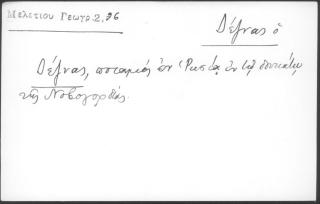 Μελετίου Γεωγρ.2,96
Δέζνας ὁ
Δέζνας, ποταμὸς ἐν Ῥωσίᾳ ἐν τῇ
τῆς Νοβογορδίας.